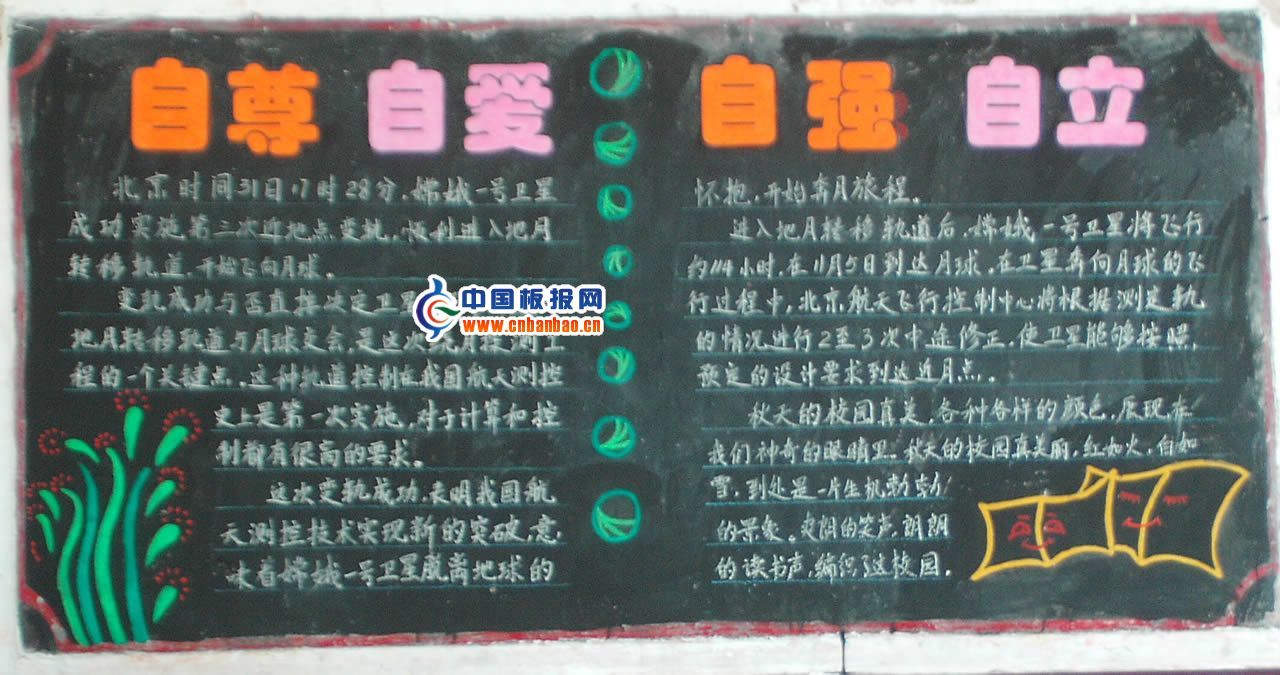 自尊 自爱
北京时间31日17时28分,嫦娥一号卫星
成功实施第三次近地点变轨,顺利进入地月
转移轨道,开始飞向月球。
变轨成功与否直接决定卫
地月转移轨道与月球交会,是这次探月探测工
程的一个关键点。这种轨道控制在我国航天测控
史上是第一次实施,对于计算和控
制都有很高的要求。
这次变轨成功,表明我国航
天测控技术实现新的突破,意
味着嫦娥一号卫星脱离地球的
自强 自立
怀抱,开始奔月旅程。
进入地月转移轨道后,嫦娥一号卫星将飞行
约114小时,在11月5日到达月球。在卫星奔向月球的飞
行过程中,北京航天飞行控制中心将根据测定轨
的情况进行2至3次中途修正,使卫星能够按照
预定的设计要求到达近月点。
秋天的校园真美,各种各样的颜色,展现在
我们神奇的眼睛里。秋天的校园真美丽,红如火,白如
雪,到处是一片生机勃勃
的景象。爽朗的笑声,朗朗
的读书声,编织了这校园。
中国板报网
www.cnbanbao.cn